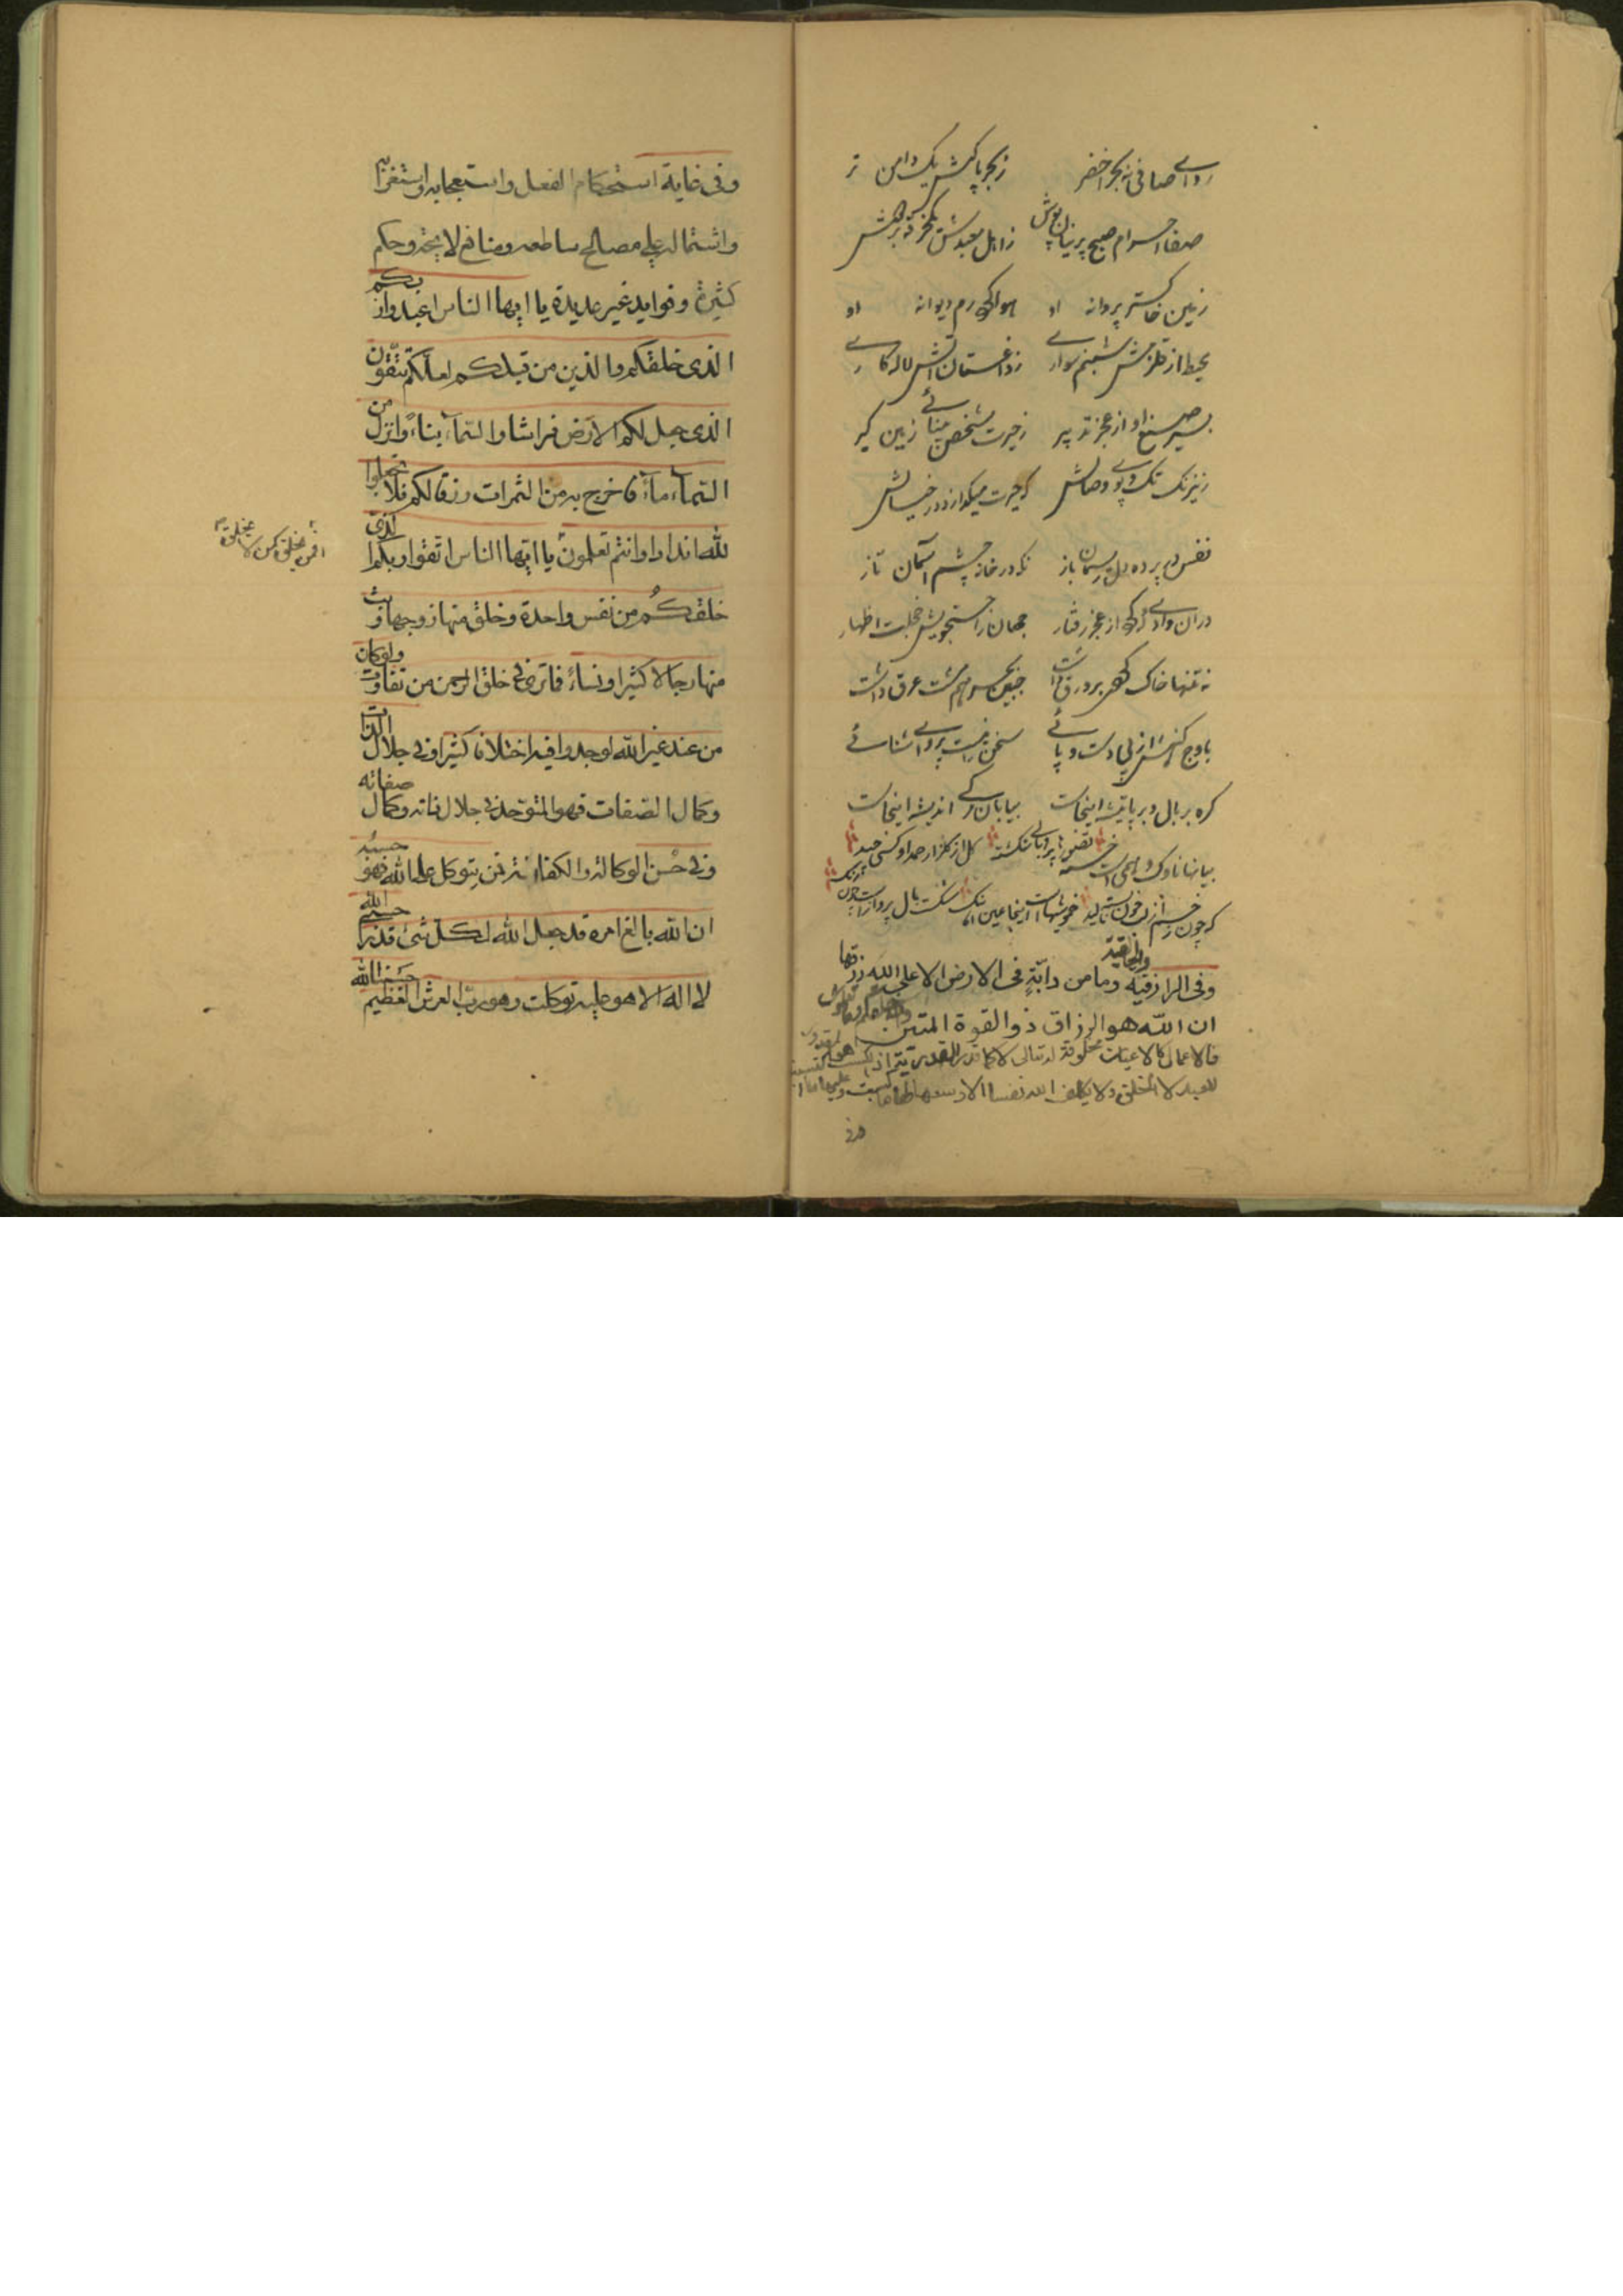 ردای صافی نه بحر اخضر ز بحر پاکیش یک دامن تر
صفا احرام صبح پرنیان پوش ز اهل معبدش
زمین خاکستر پروانه او هوا گرد رم دیوانه او
محیط از قلزمش شبنم سواری ز داغستان آتش لاله کاری
سپهر صنع او از عجز تدبیر ز حیرت شخص بینائی زمین گیر
ز نیرنگ تک و پوی وصالش که حیرت میگدازد در خیالش
نفس در پرده دل ریسمان باز نگه در خانه چشم آسمان تاز
در آن وادی که از عجز رفتار جهان را جستجویش خجلت اظهار
نه تنها خاک گوهر بر ورق داشت جبین بحر هم مشت عرق داشت
باوج کنهش از بی دست و پائی سخن را نیست پروای اشنائی
گره بر بال و بر پا تیشه اینجاست بیابان مرگی اندیشه اینجاست
گل از گلزار حمد او کسی چید
که چون زخم از لب خون بسته نالید خموشیهاست اینجا عین آهنگ شکست بال پرواز است چون رنگ
وفی الرازقیة والخالقیة وما من دابة فی الارض الا علی الله رزقها
ان الله هو الرزاق ذو القوة المتین
فالاعمال کالاعیان مخلوقة له تعالی لا کما
للعبد لا الخلق ولا یکلف الله نفسا الا وسعها لها ما کسبت وعلیها ما
وفی
وفی غایة استحکام الفعل واستعجابه واستغرابه
واشتماله علی مصالح ساطعه ومنافع لایحه وحکم
کثیرة وفواید غیر عدیدة یا ایها الناس اعبدوا ربکم
الذی خلقکم والذین من قبلکم لعلکم تتقون
الذی جعل لکم الارض فراشا والسماء بناء وانزل من
السماء ماء فاخرج به من الثمرات رزقا لکم فلا تجعلوا
لله اندادا وانتم تعلمون یا ایها الناس اتقوا ربکم الذی
خلقکم من نفس واحدة وخلق منها زوجها وبث
منهما رجالا کثیرا ونساء فما تری فی خلق الرحمن من تفاوت ولو کان
من عند غیر الله لوجدوا فیه اختلافا کثیرا وفی جلال الذات
وکمال الصفات فهو المتوحد فی جلال ذاته وکمال صفاته
وفی حسن الوکالة والکفایة فمن یتوکل علی الله فهو حسبه
ان الله بالغ امره قد جعل الله لکل شیء قدرا حسبی الله
لا اله الا هو علیه توکلت وهو رب العرش العظیم حسبنا الله
افمن یخلق کمن لا یخلق